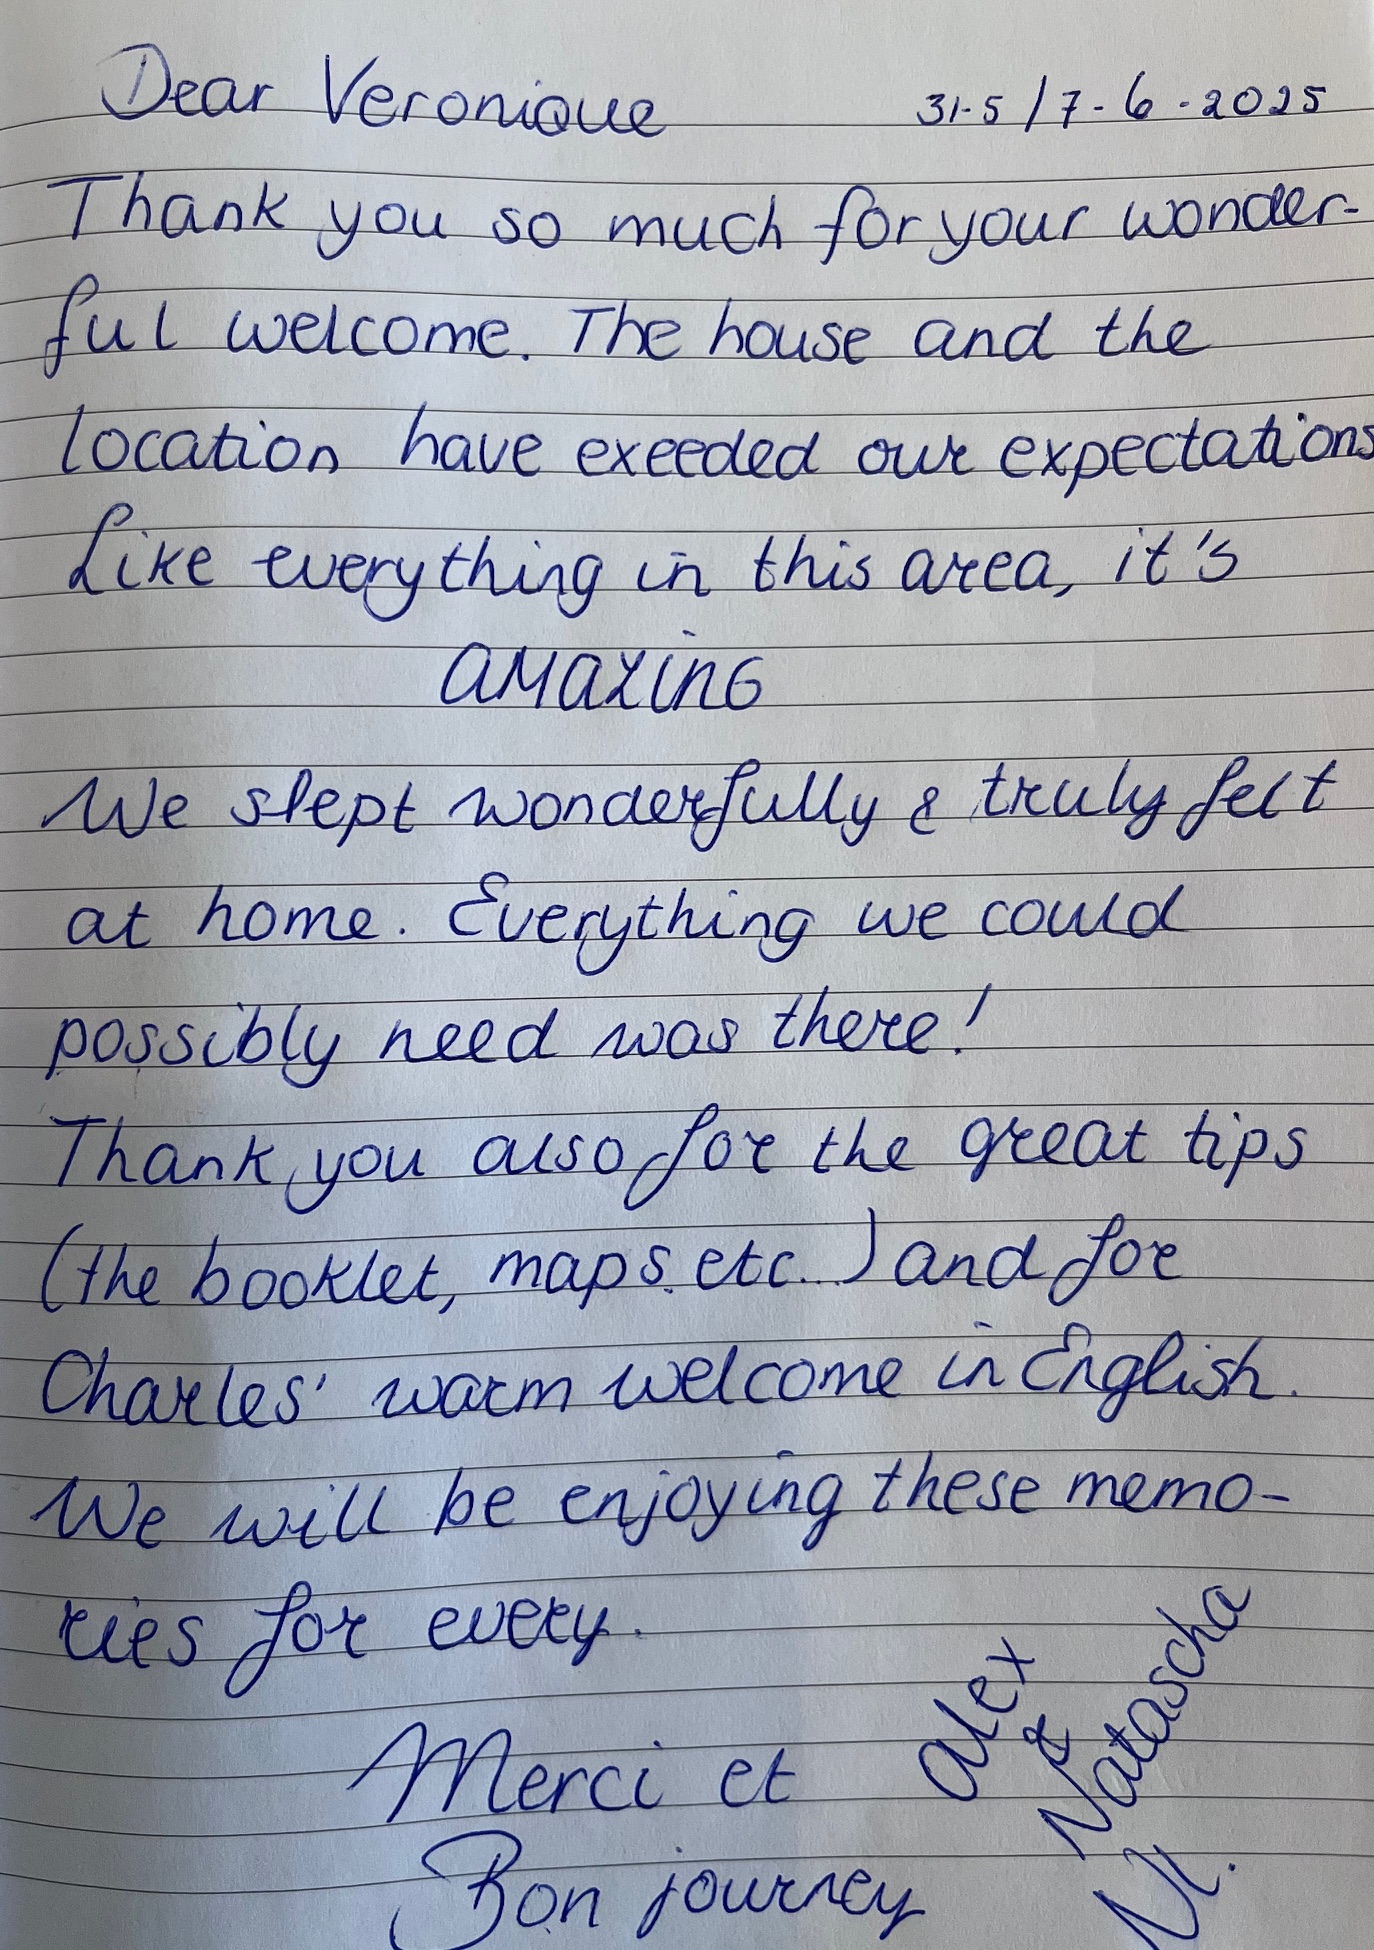 Dear Veronique 31-5 / 7-6-2025
Thank you so much for your wonder-
ful welcome. The house and the
location have exeeded our expectations
Like everything in this area, it's
AMAZING
We slept wonderfully & truly felt
at home. Everything we could
possibly need was there!
Thank you also for the great tips
(the booklet, maps etc..) and for
Charles' warm welcome in English.
We will be enjoying these memo-
ries for every.
Merci et
Bon journey
Alex
&
Natascha